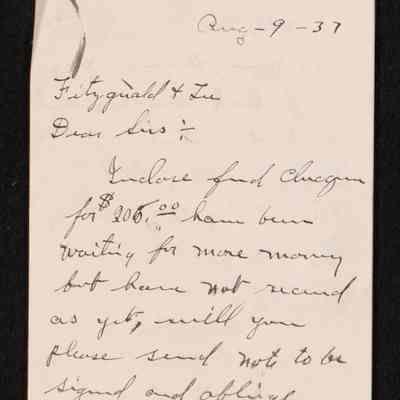 Aug - 9 - 37
Fitzgerald & Lee
Dear Sirs :-
Inclose find
for $ 205.00 have been
waiting for more money
but have not received
as yet, will you
please send note to be
signed and oblige